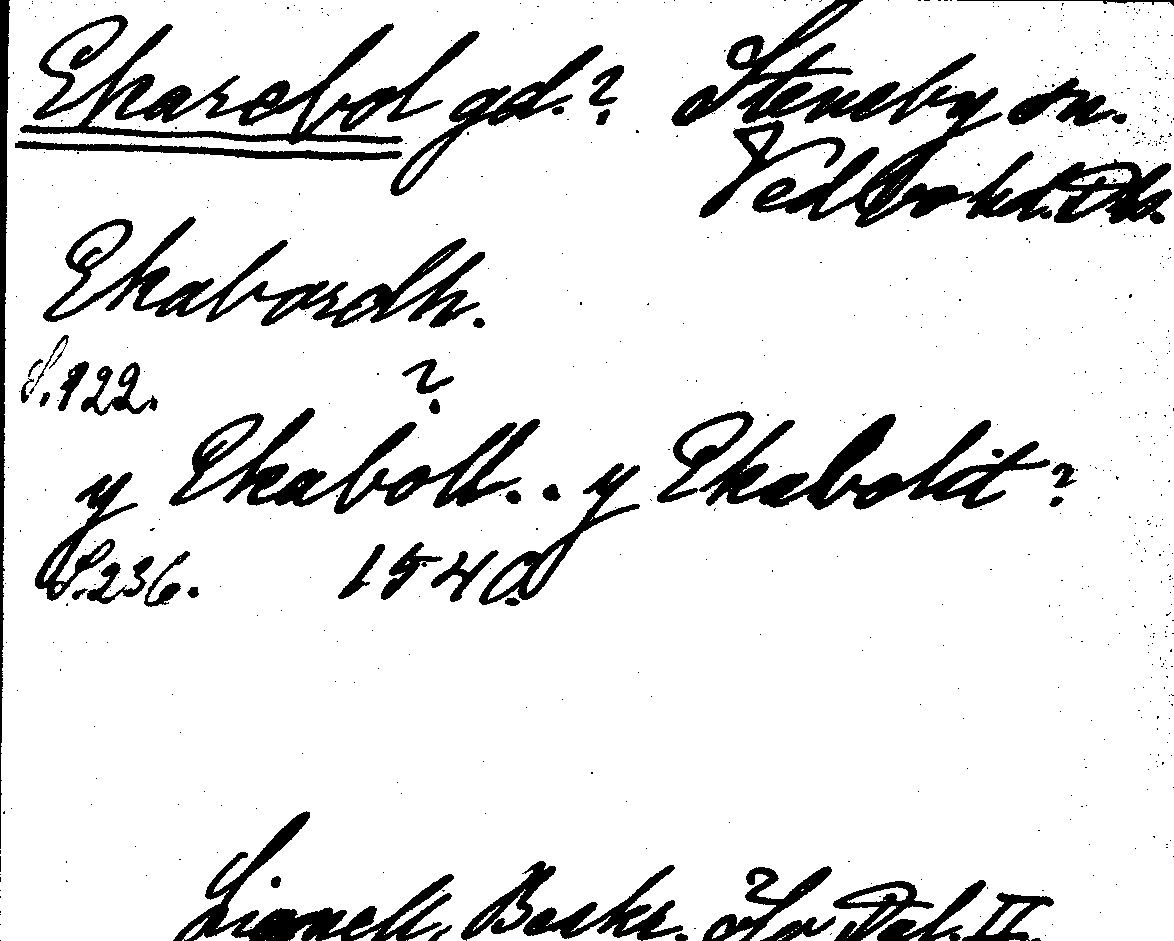 Ekarebol gd.? Steneby sn.
Vedbo hd. Dls.
Ekabordh.
S. 122. ?
y Ekaboll.. y Ekabolit?
S. 236. 1540.
Lignell, Beskr. öfv Dal. II.